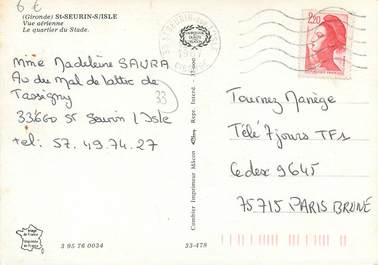 6 €
(Gironde) St-SEURIN-S/ISLE
Vue aérienne
Le quartier du Stade.
Mme Madeleine SAURA
Av du Mal de lattre de
Tassigny
33660 St Seurin L'Isle
tel: 57.49.74.27
33
Combier Imprimeur Mâcon Repr. Interd. -
2,20
Tournez Manège
Télé 7 jours TF1
Cedex 9645
75715 PARIS BRUNE
3 95 76 0034
33-478